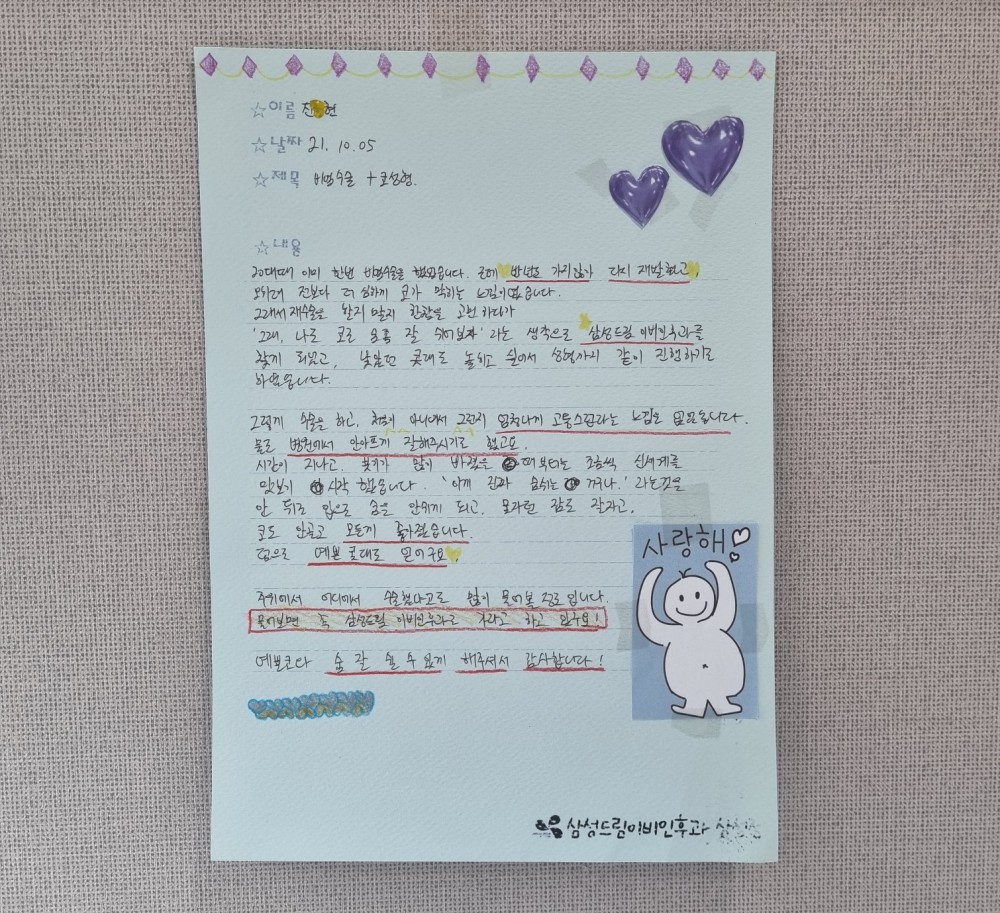 ☆이름 진 현
☆날짜 21. 10. 05
☆제목 비염수술 + 코성형.
☆내용
20대때 이미 한번 비염수술을 했었습니다. 근데 반년도 가지않아 다시 재발하고,
오히려 전보다 더 심하게 코가 막히는 느낌이었습니다.
그래서 재수술을 받지 말지 한참을 고민 하다가
'그래, 나도 코로 숨좀 잘 쉬어보자' 라는 생각으로 삼성드림 이비인후과를
찾게 되었고, 낮았던 콧대도 높히고 싶어서 성형까지 같이 진행하기로
하였습니다.
그렇게 수술을 하고, 처음이 아니어서 그런지 엄청나게 고통스럽다라는 느낌은 없었습니다.
물론 병원에서 안아프게 잘해주시기도 했고요.
시간이 지나고, 붓기가 많이 빠졌을 때부터는 조금씩 신세계를
맛보기 시작 했습니다. '이게 진짜 숨쉬는 거구나.' 라는것을
안 뒤로 입으로 숨을 안쉬게 되고, 모자란 잠도 잘자고,
코도 안골고 모든게 좋아졌습니다.
덤으로 예쁜 콧대도 얻어구요
주위에서 어디에서 수술했냐고도 많이 물어볼 정도 입니다.
물어보면 꼭 삼성드림 이비인후과로 가라고 하고 있구요!
예쁜코다 숨 잘 쉴 수 있게 해주셔서 감사합니다!
사랑해
삼성드림이비인후과